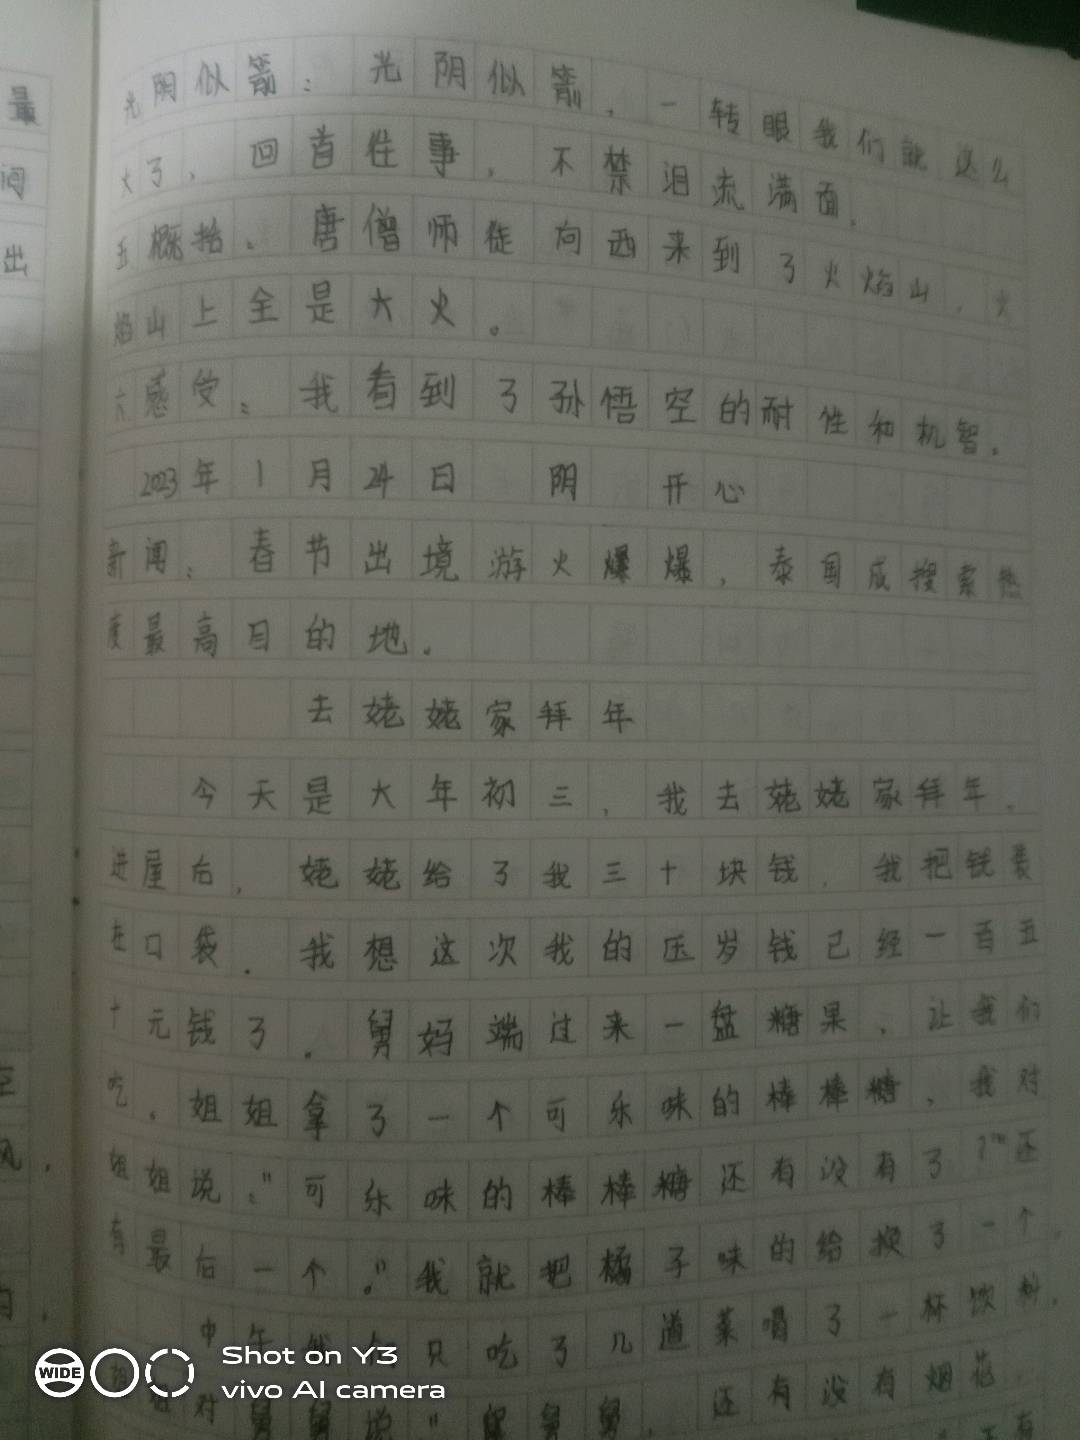 光阴似箭：光阴似箭，一转眼我们就这么
大了，回首往事，不禁泪流满面。
五概括、唐僧师徒向西来到了火焰山，火
焰山上全是大火。
六感受：我看到了孙悟空的耐性和机智。
2023年1月24日 阴 开心
新闻：春节出境游火爆爆，泰国成搜索热
度最高目的地。
去姥姥家拜年
今天是大年初三，我去姥姥家拜年。
进屋后，姥姥给了我三十块钱，我把钱装
在口袋．我想这次我的压岁钱已经一百五
十元钱了。舅妈端过来一盘糖果，让我们
吃。姐姐拿了一个可乐味的棒棒糖，我对
姐姐说："可乐味的棒棒糖还有没有了？""还
有最后一个。"我就把橘子味的给换了一个。
中午我们只吃了几道菜喝了一杯饮料，
对舅舅说"舅舅舅，还有没有烟花．
有
最
间
出
风．
WIDE
Shot on Y3
vivo AI camera